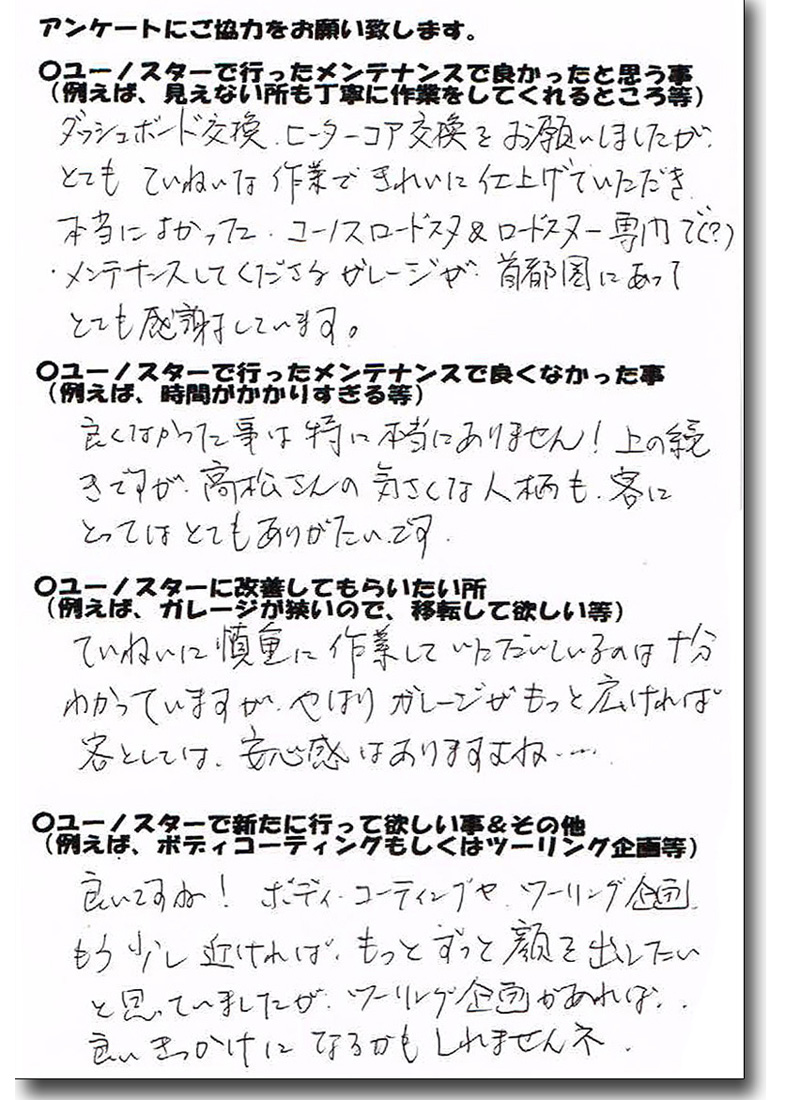 アンケートにご協力をお願い致します。
〇ユーノスターで行ったメンテナンスで良かったと思う事
(例えば、見えない所も丁寧に作業をしてくれるところ等)
ダッシュボード交換、ヒーターコア交換をお願いしましたが、
とてもていねいな作業できれいに仕上げていただき
本当によかった。ユーノスロードスタ&ロードスター専門で(?)
メンテナンスしてくださるガレージが、首都圏にあって
とても感謝しています。
〇ユーノスターで行ったメンテナンスで良くなかった事
(例えば、時間がかかりすぎる等)
良くなかった事は特に本当にありません!上の続
きですが、高松さんの気さくな人柄も、客に
とってはとてもありがたいです.
〇ユーノスターに改善してもらいたい所
(例えば、ガレージが狭いので、移転して欲しい等)
ていねいに慎重に作業していただいているのは十分
わかっていますが、やはりガレージがもっと広ければ
客としては、安心感はありますよね……
〇ユーノスターで新たに行って欲しい事&その他
(例えば、ボディコーティングもしくはツーリング企画等)
良いですね!ボディ・コーティングや、ツーリング企画.
もう少し近ければ、もっとずっと顔を出したい
と思っていましたが、ツーリング企画があれば、.
良いきっかけになるかもしれませんネ.